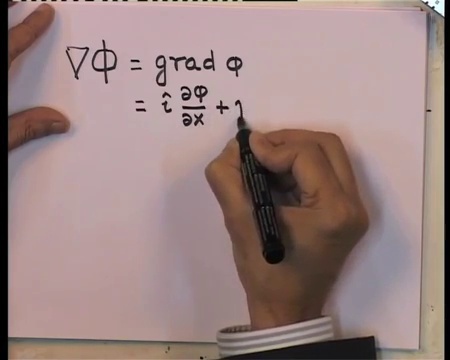 ∇Φ = grad φ
= î ∂φ/∂x +